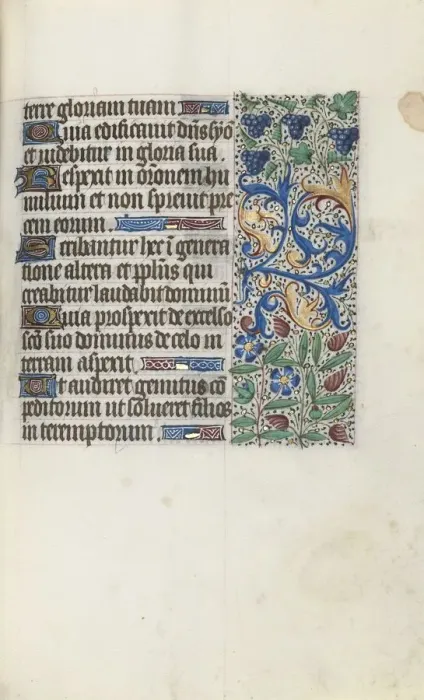 terre gloriam tuam
Quia edificavit dñs syõ
et videbitur in gloria sua.
Respexit in orõnem hu
milium et non sprevit pre
cem eorum.
Scribantur hec ĩ genera
tione altera et pplũs qui
creabitur laudabit dominũ
Quia prospexit de excelso
scõ suo dominus de celo in
terram aspexit
Ut audiret gemitus cõ
peditorum ut solveret filios
interemptorum.